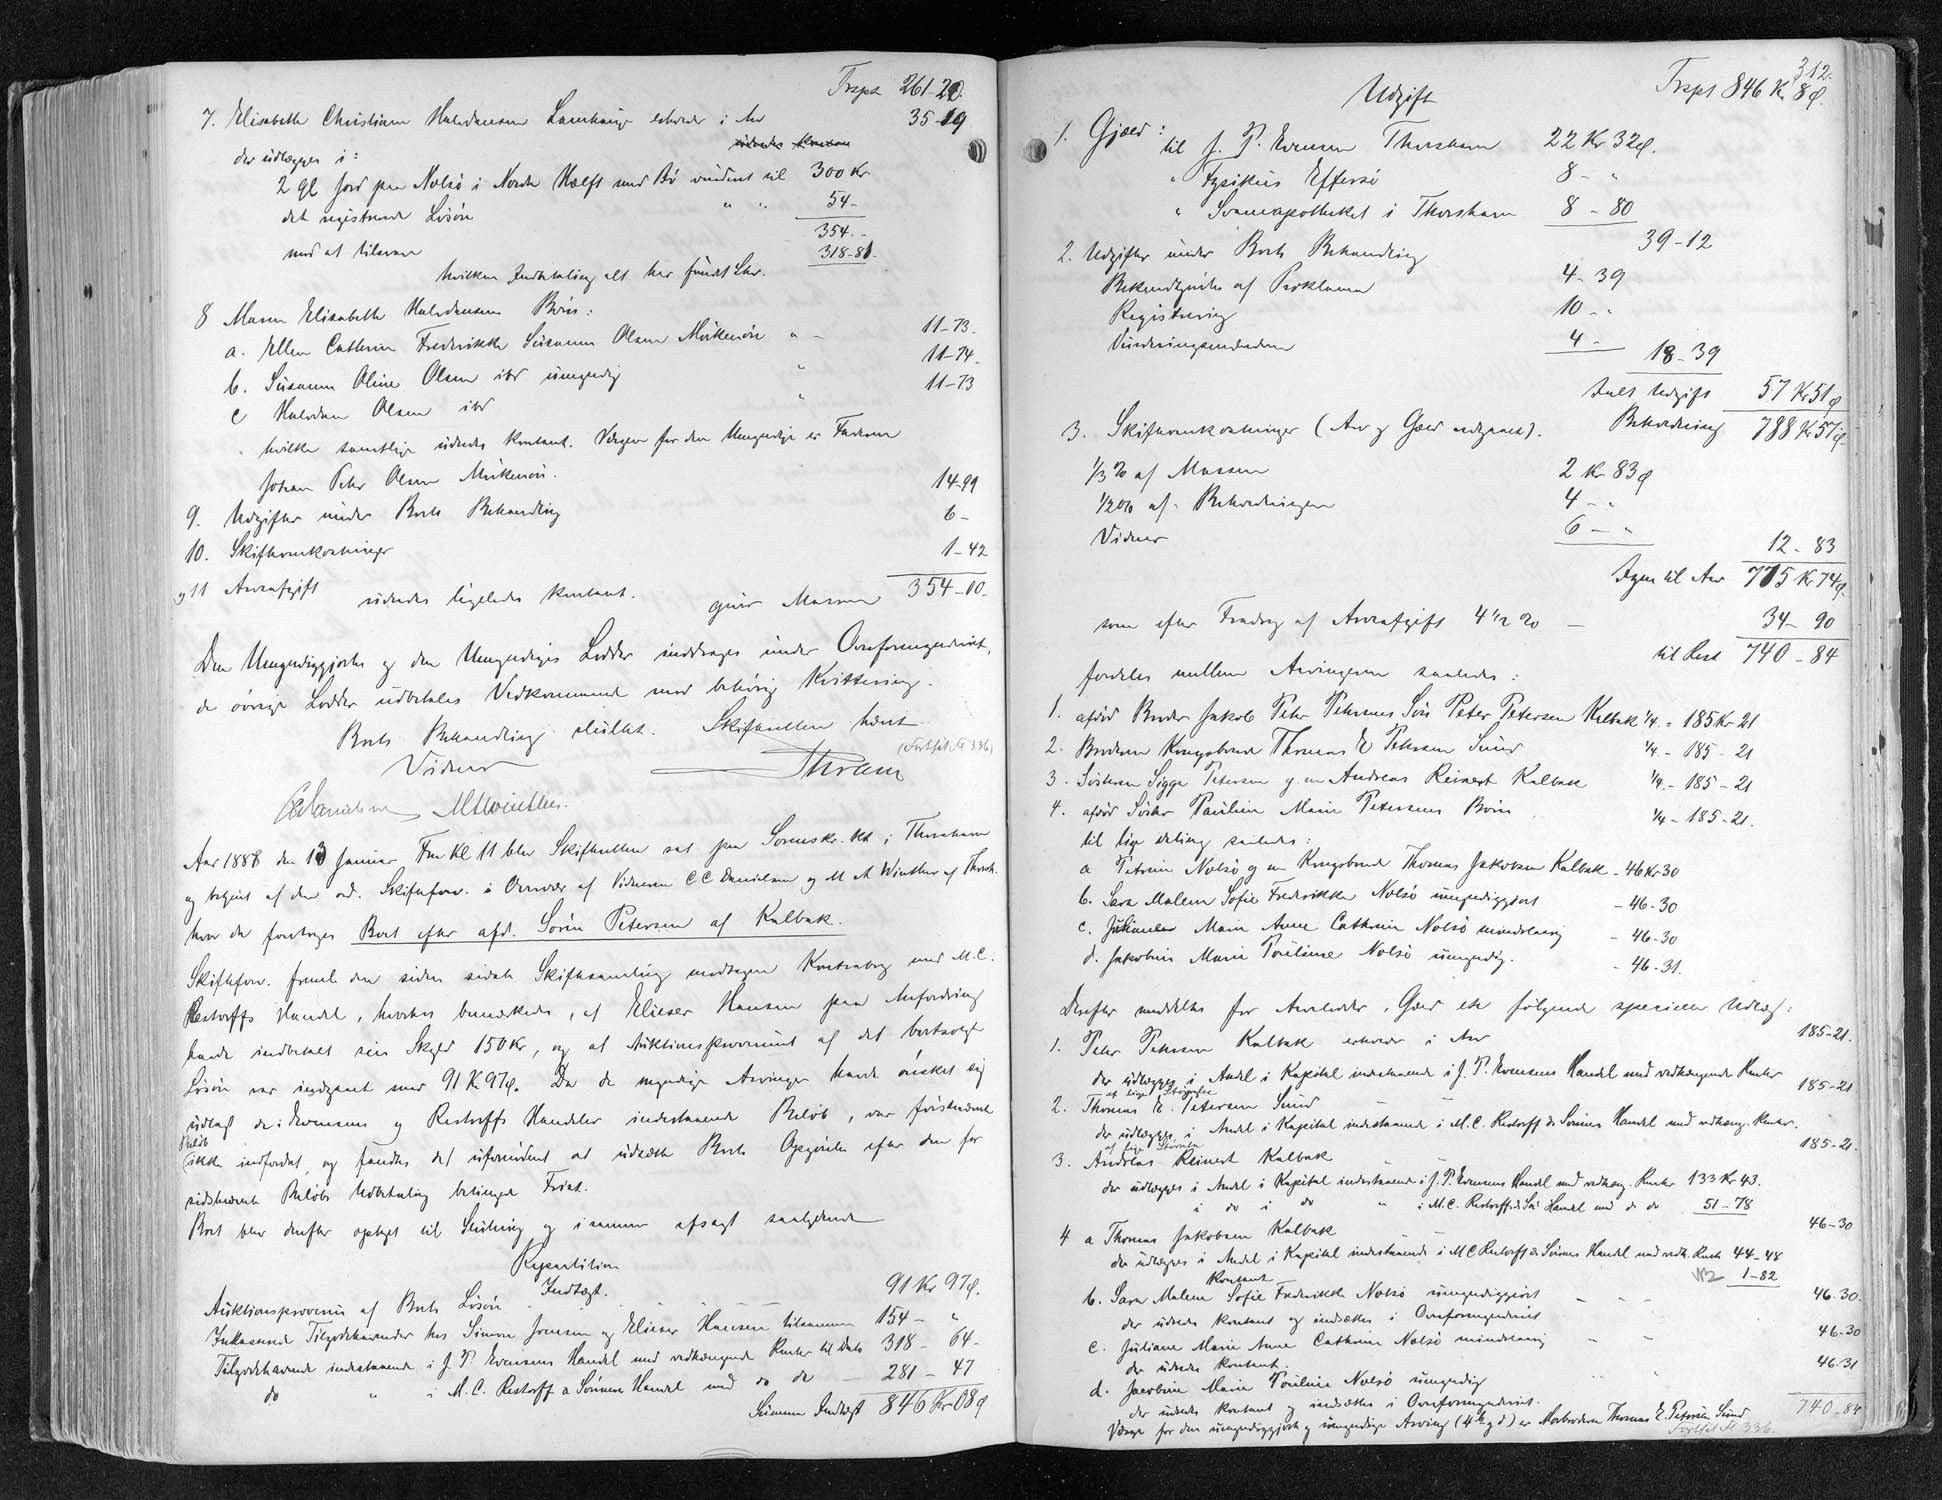 Trspt 261-20.
7. Elisabeth Christiane Halvdansen Lamhauge erholder i Arv 35-19
der udlægges i:
2 Gl Jord paa Nolsö i Nordre Hælft med Bö vurderet til 300 Kr
det registrerede Lösöre " " 54-
354.-
mod at tilsvare 318-81.
hvilken Indbetaling alt har fundet Sted.
8 Maren Elisabeth Halvdansens Börn:
a. Ellen Cathrine Frederikke Susanne Olsen Mikkenöre " - 11-73.
b. Susanne Oline Olsen ibd umyndig " 11-74.
c Halvdan Olsen ibd " 11-73
hvilke samtlige udredes kontant. Værgen for den Umyndige er Faderen
Johan Peter Olsen
9. Udgifter under Boets Behandling 14-99
10. Skifteomkostninger 6-
og 11 Arveafgift 1-42
udredes ligeledes kontant. giver Massen 354-00.
Den Umyndiggjortes og den Umyndiges Lodder inddrages under Overformynderiet,
de övrige Lodder udbetales Vedkommende mod behörig Kvittering.
Boets Behandling sluttet. Skifteretten hævet
(Fortsat Fl 336)
Vidner
CC Danielsen MAWinther.
Aar 1888 den 13 Januar Fm Kl 11 blev Skifteretten sat paa Sorenskr. Kt. i Thorshavn
og betjent af den ord. Skifteforv. i Overvær af Vidnerne CC Danielsen og M A Winther af Thorsh.
hvor da foretoges Boet efter afd. Sören Petersen af Kalbak.
Skifteforv. freml. den siden sidste Skiftesamling modtagne Kontrabog med M.C.
Restorffs Handel, hvorhos bemærkedes, at Elieser Hansen paa Anfordring
havde indbetalt sin Skyld 150 Kr, og at Auktionsprovenuet af det bortsolgte
Lösöre var indgaaet med 91 Kr 97 Ø. Da de myndige Arvinger havde önsket sig
udlagt de i Evensens og Restorffs Handeler indestaaende Belöb, var förstnævnte
Belöb
ikke indfordret, og fandtes det ufornödent at udsætte Boets Opgjörelse efter den for
sidstnævnte Belöbs Udbetaling betingede Frist.
Boet blev derefter optaget til Slutning og i samme afsagt saalydende
Repartition
Indtægt.
Auktionsprovenu af Boets Lösöre 91 Kr 97 Ø.
Inkasserede Tilgodehavender hos Simon Joensen og Elieser Hansen tilsammen 154 - "
Tilgodehavende indestaaende i J. P. Evensens Handel med vedhængende Renter til Dato 318 - 64-
do " i M. C. Restorff & Sönners Handel med do do - 281 - 47
Summa Indtægt 846 Kr 08 Ø
312.
Udgift Trspt 846 Kr 8 Ø.
1. Gjæld:
til J. P. Evensen Thorshavn 22 Kr 32 Ø.
" Fysikus Effersö 8 - "
" Svaneapotheket i Thorshavn 8 - 80
39-12
2. Udgifter under Boets Behandling
Bekjendtgjörelse af Proklama 4-39
Registrering 10 - "
Vurderingsmændene 4 -
18-39
Ialt Udgift 57 Kr 51 Ø
Beholdning 788 Kr 57 Ø
3. Skifteomkostninger (Arv og Gæld
1/3 % af Massen 2 Kr 83 Ø
1/2 % af Beholdningen 4 - "
Vidner 6 - "
12 - 83
Igjen til Arv 775 Kr 74 Ø.
som efter Fradrag af Arveafgift 4 1/2 % - 34- 90
til Rest 740 - 84
fordeles mellem Arvingerne saaledes:
1. afdöd Broder Jakob Peter Petersens Sön Peter Petersen Kalbak 1/4 - 185 Kr 21
2. Broderen Kongsbonde Thomas E Petersen Sund 1/4 - 185 - 21
3. Sösteren Sigga Petersen g. m Andreas Reinert Kalbak 1/4 - 185 - 21
4. afdöd Söster Pauline Marie Petersens Börn 1/4 - 185-21.
til lige Deling saaledes:
a Petrine Nolsö g m Kongsbonde Thomas Jakobsen Kalbak - 46 Kr 30
b. Sara Malene Sofie Frederikke Nolsö umyndiggjort - 46-30
c. Juliane Marie Anne Cathrine Nolsö mindreaarig - 46-30
d. Jakobine Marie Pouline Nolsö umyndig. - 46-31.
Derefter meddeles for Arvelodder, Gæld etc følgende specielle Udlæg:
1. Peter Petersen Kalbak erholder i Arv 185-21.
der udlægges i Andel i Kapital indestaaende i J. P. Evensens Handel med vedhængende Renter
af lige Störrelse
2. Thomas E. Petersen Sund 185-21
der udlægges i Andel i Kapital indestaaende i M. C. Restorff & Sönners Handel med vedhæng. Renter.
af lige Störrelse
3. Andreas Reinert Kalbak 185-21.
der udlægges i Andel i Kapital indestaaende i J. P. Evensens Handel med vedhæng. Renter 133 Kr 43.
i do i do " i M. C. Restorff & Sön Handel med do do 51-78
4 a Thomas Jakobsen Kalbak 46-30
der udlægges i Andel i Kapital indestaaende i M C Restorff & Sönners Handel med vedh. Rente 44-48
Kontant 1-82
b. Sara Malene Sofie Frederikke Nolsö umyndiggjort - - - 46-30.
der udredes kontant og indsættes i Overformynderiet
c. Juliane Marie Anne Cathrine Nolsö mindreaarig - - 46-30
der udredes kontant.
d. Jacobine Marie Pouline Nolsö umyndig 46-31
der udredes kontant og indsættes i Overformynderiet.
Værge for den umyndiggjorte og umyndige Arving (4 b og d) er Morbroderen Thomas E. Petersen Sund 740-84
Fortsat Fl 336.